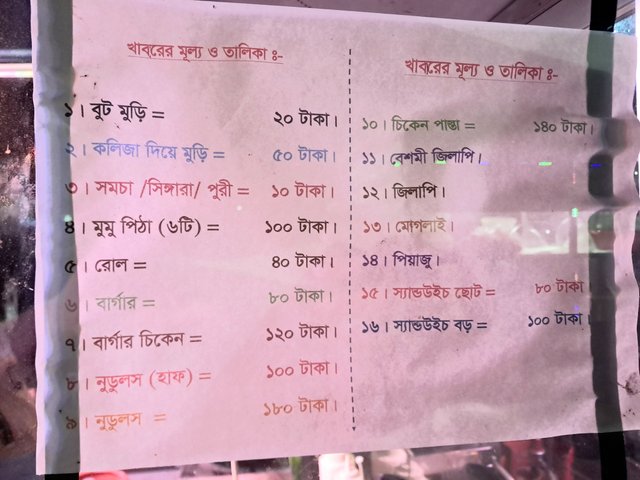 খাবারের মূল্য ও তালিকা ঃ-
১। বুট মুড়ি = ২০ টাকা।
২। কলিজা দিয়ে মুড়ি = ৫০ টাকা।
৩। সমচা /সিঙ্গারা/ পুরী = ১০ টাকা।
৪। মুমু পিঠা (৬টি) = ১০০ টাকা।
৫। রোল = ৪০ টাকা।
৬। বার্গার = ৮০ টাকা।
৭। বার্গার চিকেন = ১২০ টাকা।
৮। নুডুলস (হাফ) = ১০০ টাকা।
৯। নুডুলস = ১৮০ টাকা।
খাবারের মূল্য ও তালিকা ঃ-
১০। চিকেন পাস্তা = ১৪০ টাকা।
১১। বেশমী জিলাপি।
১২। জিলাপি।
১৩। মোগলাই।
১৪। পিয়াজু।
১৫। স্যান্ডউইচ ছোট = ৮০ টাকা।
১৬। স্যান্ডউইচ বড় = ১০০ টাকা।